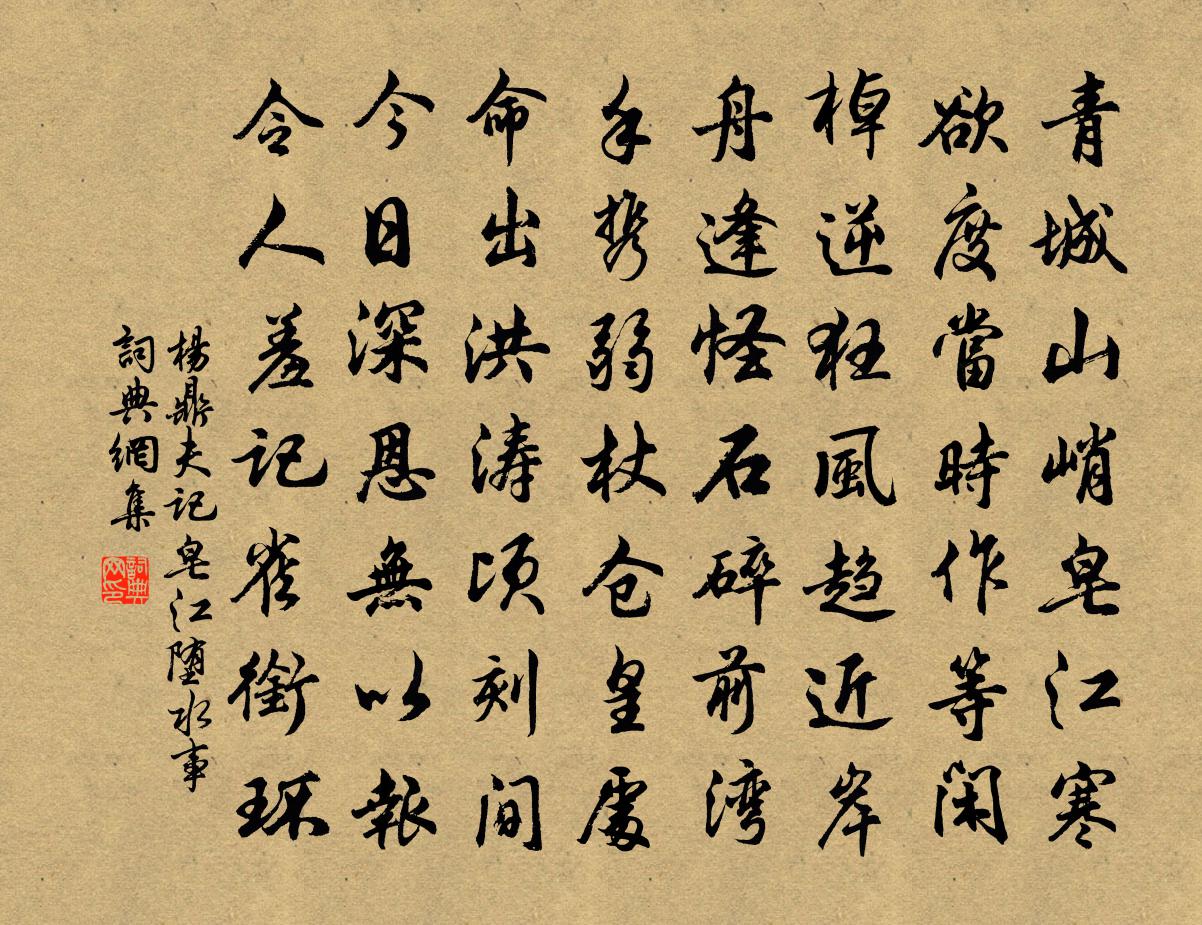 青城山峭皂江寒
欲度當時作等閑
棹逆狂風趋近岸
舟逢怪石碎前湾
手携弱杖仓皇處
命出洪涛顷刻間
今日深恩無以報
令人羞記雀銜环
楊鼎夫记皂江堕水事
詞典網集
詞典网印